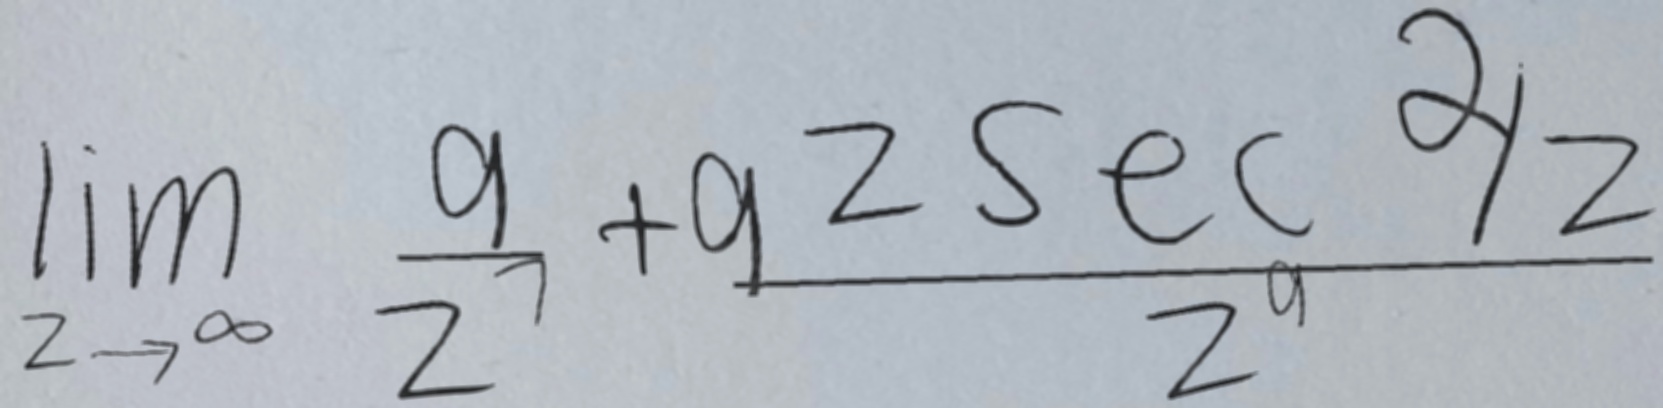 \lim_{z \to \infty} \frac{9}{z^7} + \frac{9z \sec 2/z}{z^9}